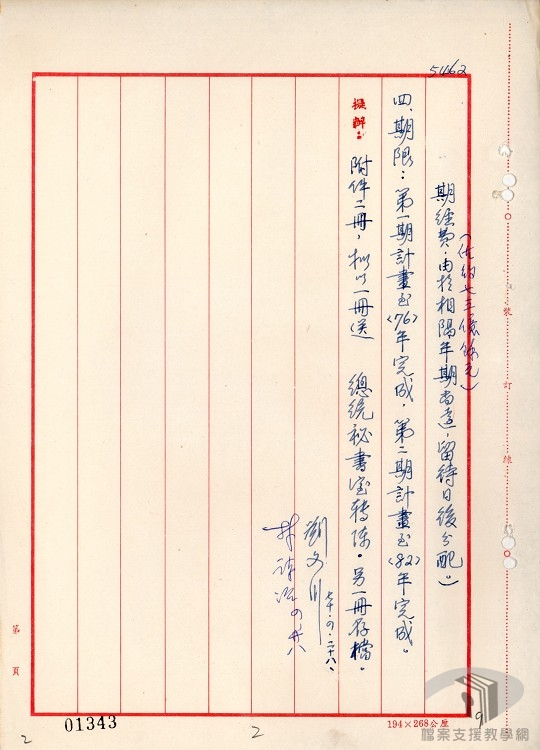 5462
(估約七三億餘元)
期經費，由於相隔年期尚遠，留待日後分配。
四、期限：第一期計畫至(76)年完成，第二期計畫至(82)年完成。
擬辦：附件二冊，擬以一冊送 總統秘書室轉陳。另一冊存檔。
裝訂線
第 頁
01343
2
2
194×268公厘
9
檔案支援教學網